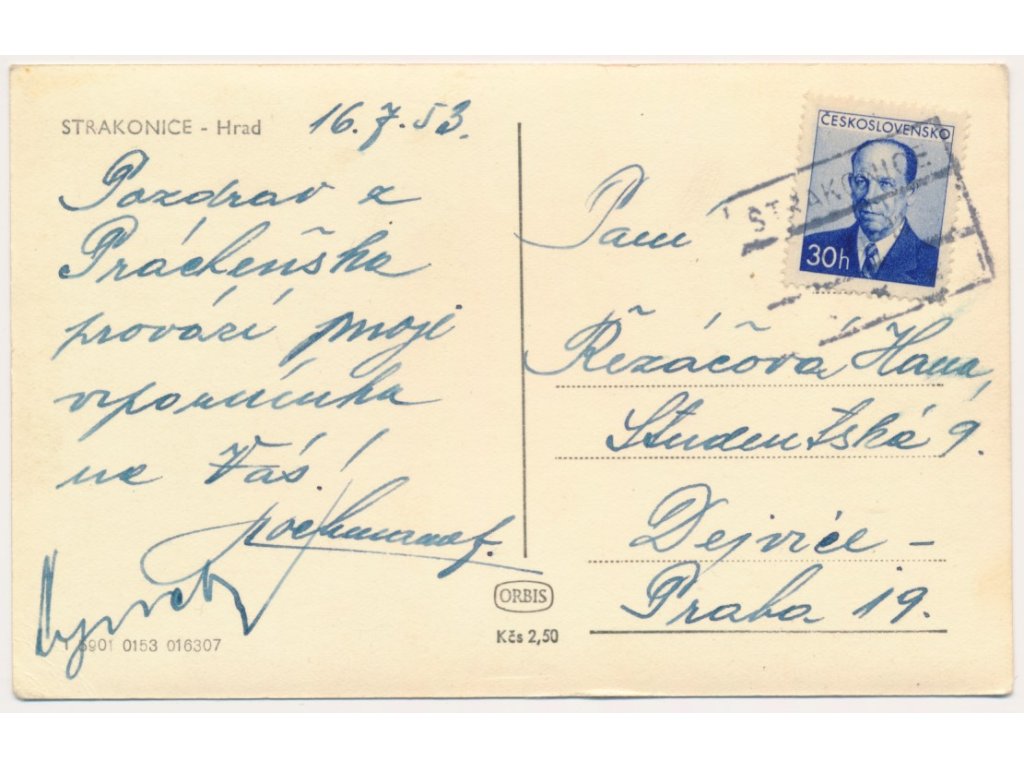 STRAKONICE - Hrad
16.7.53.
Pozdrav z
Prácheňska
provází moje
vzpomínka
na Vás!
ČESKOSLOVENSKO
30h
STRAKONICE
Paní
Řezáčová Hana,
Studentská 9.
Dejvice –
Praha 19.
ORBIS
Kčs 2,50
5901 0153 016307